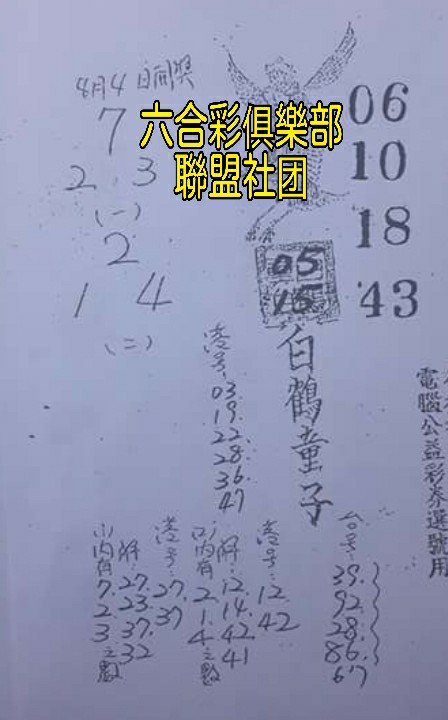 4月4日開獎
7
2 3
(一)
2
1 4
(二)
六合彩俱樂部
聯盟社团
06
10
18
43
05
15
白鶴童子
電腦公益彩券選號用
港号:
03
19.
22.
28
36.
47
台号:
39.
92.
28.
86.
67
港号:
12
42
解:
12.
14.
42
41
(二)內有
2.
1.
4之數
港号:
27.
37
解:
27.
23.
37.
32
(一)內有
7.
2.
3.之數